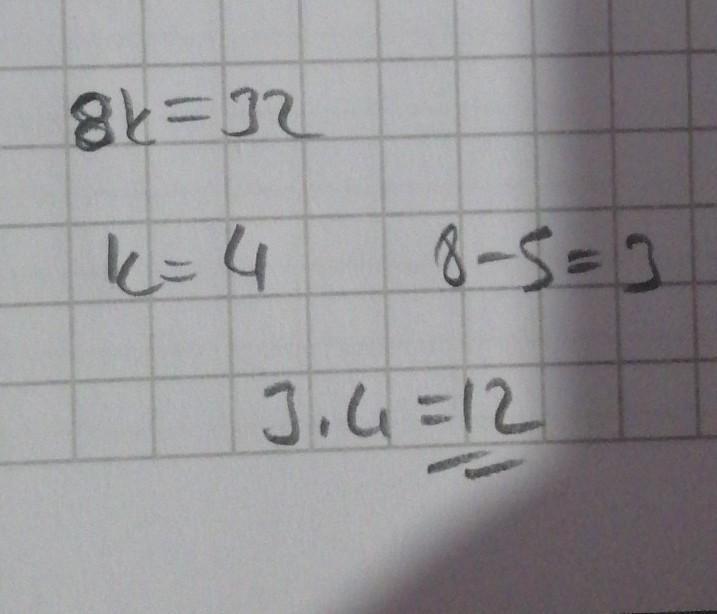 8k=32
k=4 8-5=3
3.4=12